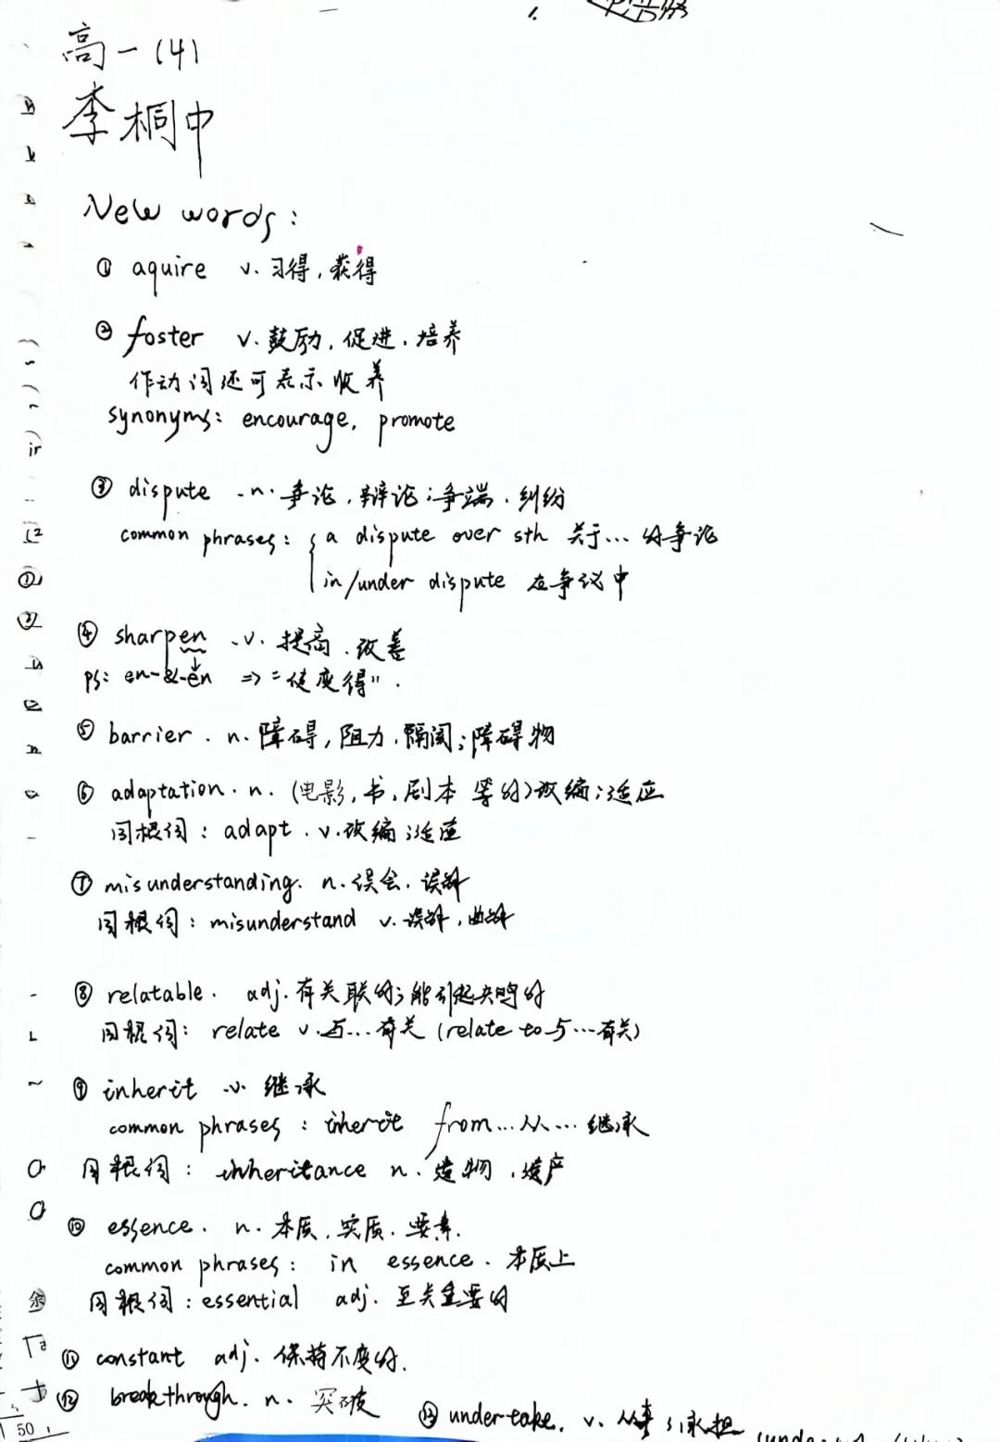 高一(4)
李桐中
New words:
① aquire v. 习得,获得
② foster v. 鼓励,促进,培养
作动词还可表示收养
synonyms: encourage, promote
③ dispute .n. 争论,辩论;争端,纠纷
common phrases: { a dispute over sth 关于...的争论
in/under dispute 在争议中
④ sharpen .v. 提高.改善
ps: en-&-en => "使变得".
⑤ barrier. n. 障碍,阻力,隔阂;障碍物
⑥ adaptation. n. (电影,书,剧本 等的)改编;适应
同根词: adapt. v. 改编;适应
⑦ misunderstanding. n. 误会,误解
同根词: misunderstand v. 误解,曲解
⑧ relatable. adj. 有关联的;能引起共鸣的
同根词: relate v. 与...有关 (relate to 与...有关)
⑨ inherit v. 继承
common phrases: inherit from...从...继承
同根词: inheritance n. 遗物,遗产
⑩ essence. n. 本质,实质,要素.
common phrases: in essence. 本质上
同根词: essential adj. 至关重要的
⑪ constant adj. 保持不变的.
⑫ breakthrough. n. 突破
⑬ undertake. v. 从事;承担
50